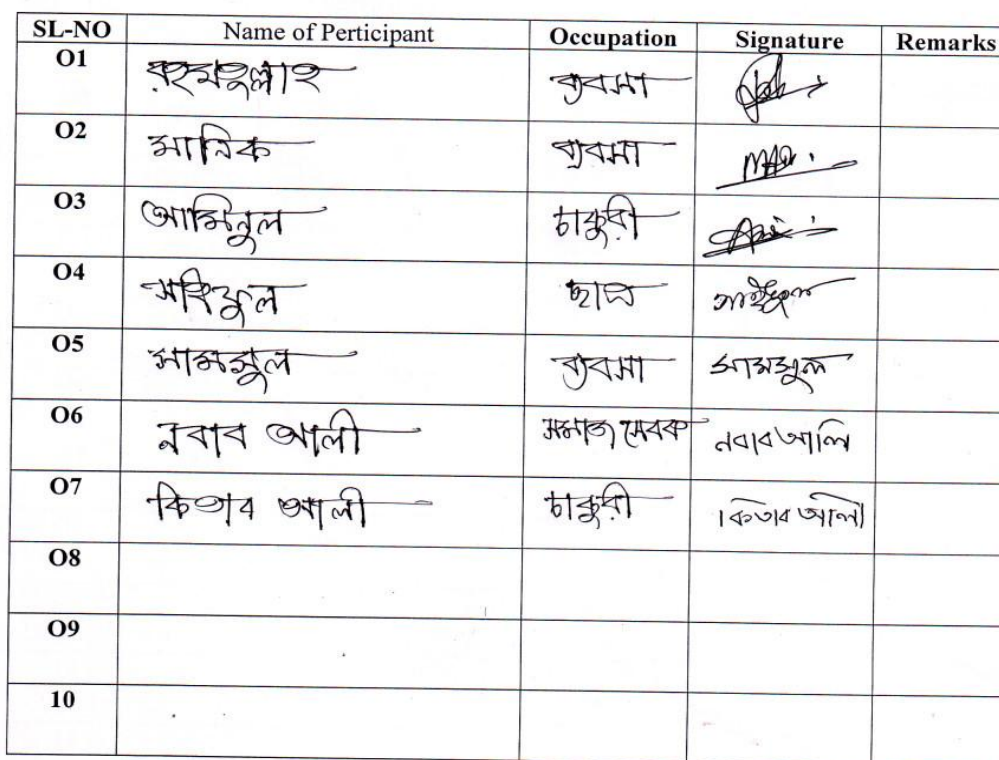 SL-NO Name of Perticipant Occupation Signature Remarks
O1 রহমতুল্লাহ ব্যবসা
O2 মানিক ব্যবসা
O3 আমিনুল চাকুরী
O4 সহিদুল ছাত্র
O5 সামসুল ব্যবসা সামসুল
O6 নবাব আলী সমাজ সেবক নবাব আলি
O7 কিতাব আলী চাকুরী কিতাব আলী
O8
O9
10